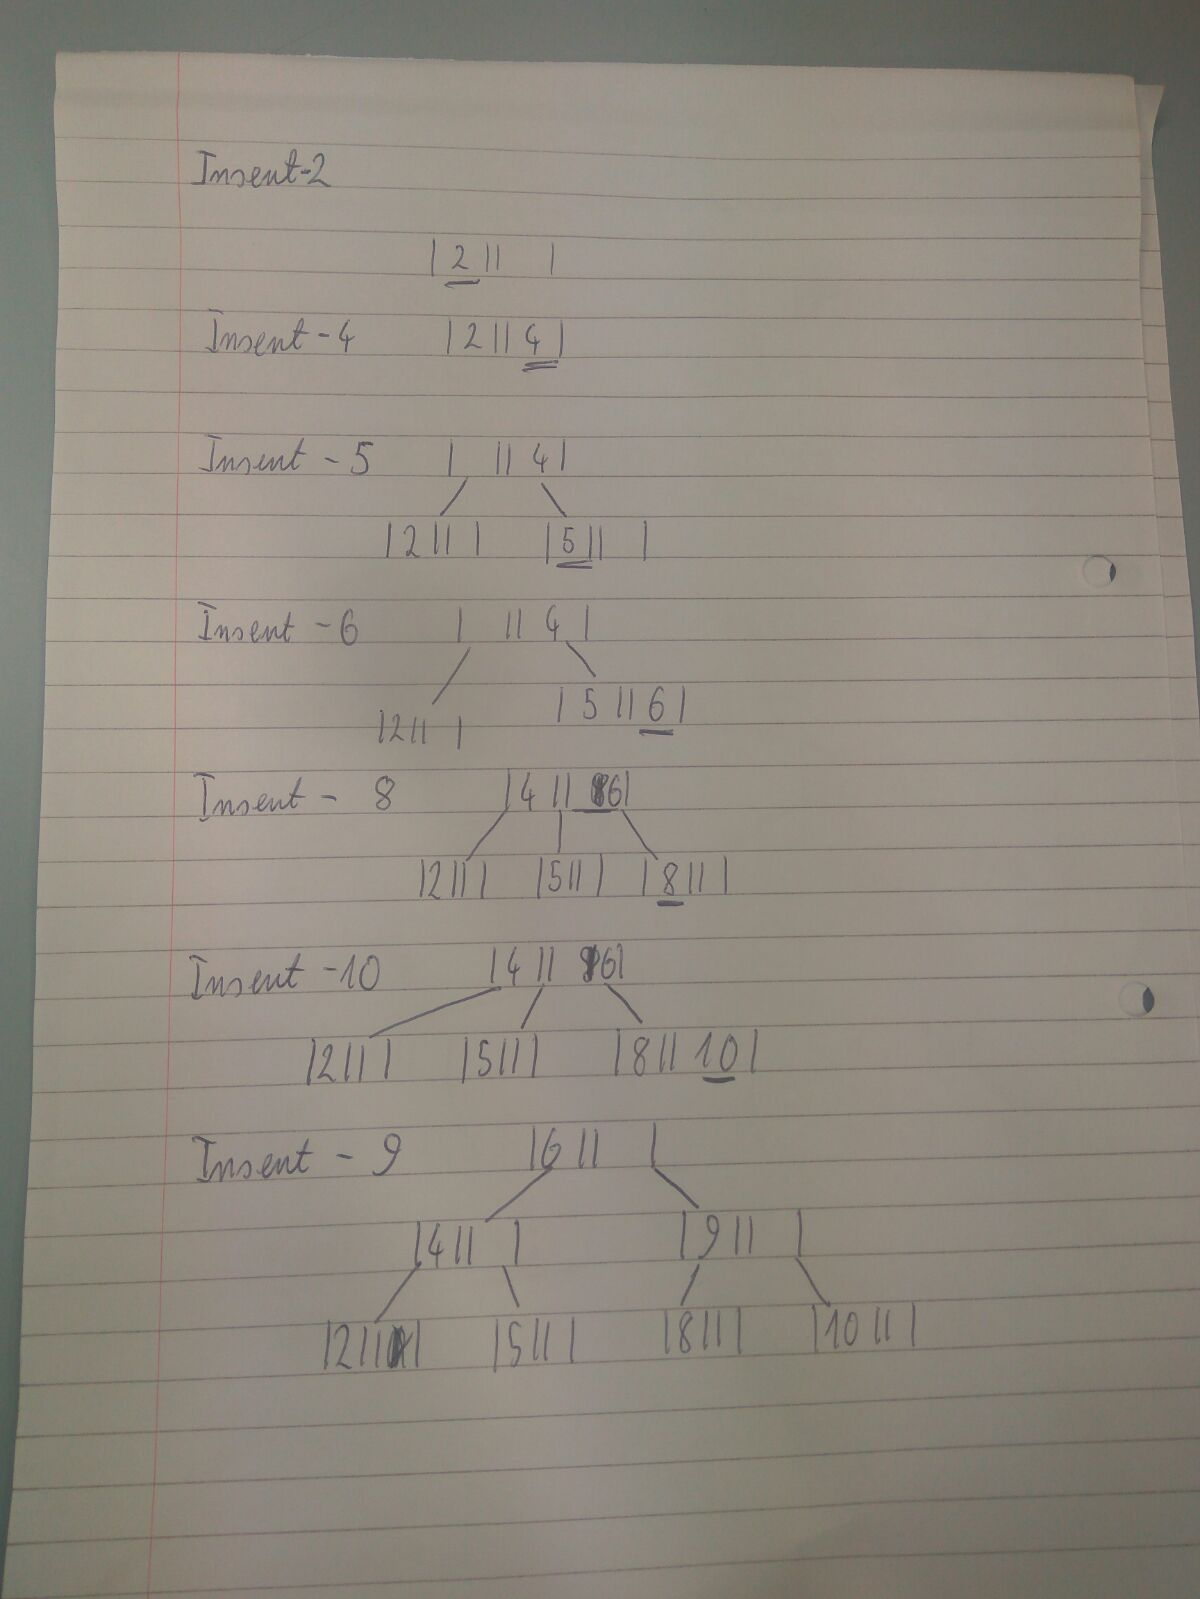 Insert-2
|2|| |
Insert-4 |2||4|
Insert-5 | ||4|
|2|| | |5|| |
Insert-6 | ||4|
|2|| | |5||6|
Insert-8 |4||6|
|2|| | |5|| | |8|| |
Insert-10 |4||6|
|2|| | |5|| | |8||10|
Insert-9 |6|| |
|4|| | |9|| |
|2|| | |5|| | |8|| | |10|| |